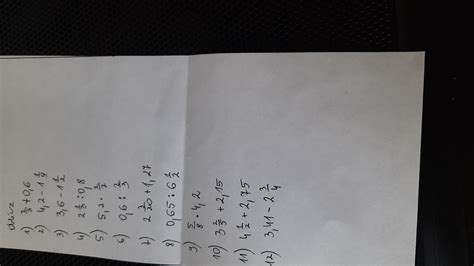 1) 2/5 + 0,6
2) 4,2 - 1 1/4
3) 3,6 - 1 1/2
4) 2 2/5 : 0,8
5) 5,2 · 2/7
6) 0,6 : 2/3
7) 2 7/20 + 1,27
8) 0,65 : 6 1/2
9) 5/8 · 4,2
10) 3 2/5 + 2,15
11) 4 1/2 + 2,75
12) 3,41 - 2 3/4